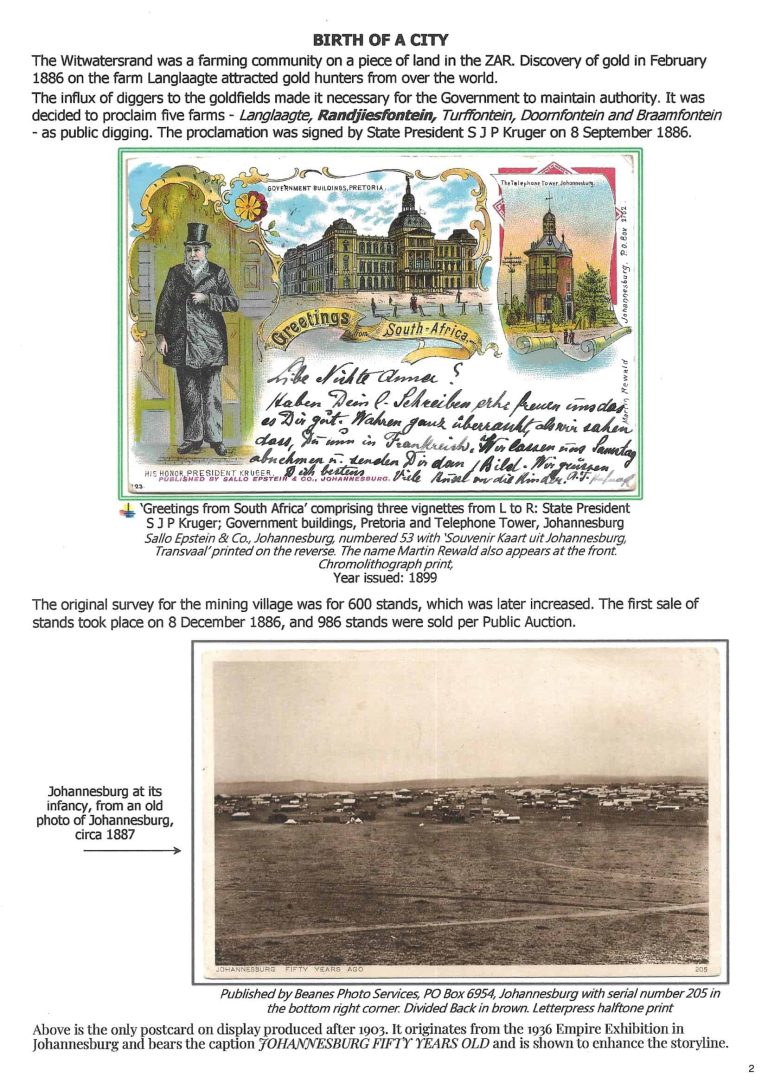 BIRTH OF A CITY
The Witwatersrand was a farming community on a piece of land in the ZAR. Discovery of gold in February
1886 on the farm Langlaagte attracted gold hunters from over the world.
The influx of diggers to the goldfields made it necessary for the Government to maintain authority. It was
decided to proclaim five farms - Langlaagte, Randjiesfontein, Turffontein, Doornfontein and Braamfontein
- as public digging. The proclamation was signed by State President S J P Kruger on 8 September 1886.
GOVERNMENT BUILDINGS, PRETORIA.
The Telephone Tower, Johannesburg.
Greetings from South-Africa.
Martin Rewald Johannesburg. P.O. Box 2762
Liebe Nichte Anna!
Haben Dein l. Schreiben erhe freuen uns das
es Dir gut. Wahren ganz überrascht, als wir sahen
dass, Du in Frankreich. Wir lassen uns Samstag
abnehmen u. senden Dir dann 1 Bild. Wir grüssen
Dich bestens Viele an die Kinder.
HIS HONOR, PRESIDENT KRUGER.
PUBLISHED BY SALLO EPSTEIN & CO., JOHANNESBURG.
'Greetings from South Africa' comprising three vignettes from L to R: State President
S J P Kruger; Government buildings, Pretoria and Telephone Tower, Johannesburg
Sallo Epstein & Co., Johannesburg, numbered 53 with 'Souvenir Kaart uit Johannesburg,
Transvaal' printed on the reverse. The name Martin Rewald also appears at the front.
Chromolithograph print,
Year issued: 1899
The original survey for the mining village was for 600 stands, which was later increased. The first sale of
stands took place on 8 December 1886, and 986 stands were sold per Public Auction.
Johannesburg at its
infancy, from an old
photo of Johannesburg,
circa 1887
JOHANNESBURG FIFTY YEARS AGO
205
Published by Beanes Photo Services, PO Box 6954, Johannesburg with serial number 205 in
the bottom right corner. Divided Back in brown. Letterpress halftone print
Above is the only postcard on display produced after 1903. It originates from the 1936 Empire Exhibition in
Johannesburg and bears the caption JOHANNESBURG FIFTY YEARS OLD and is shown to enhance the storyline.
2